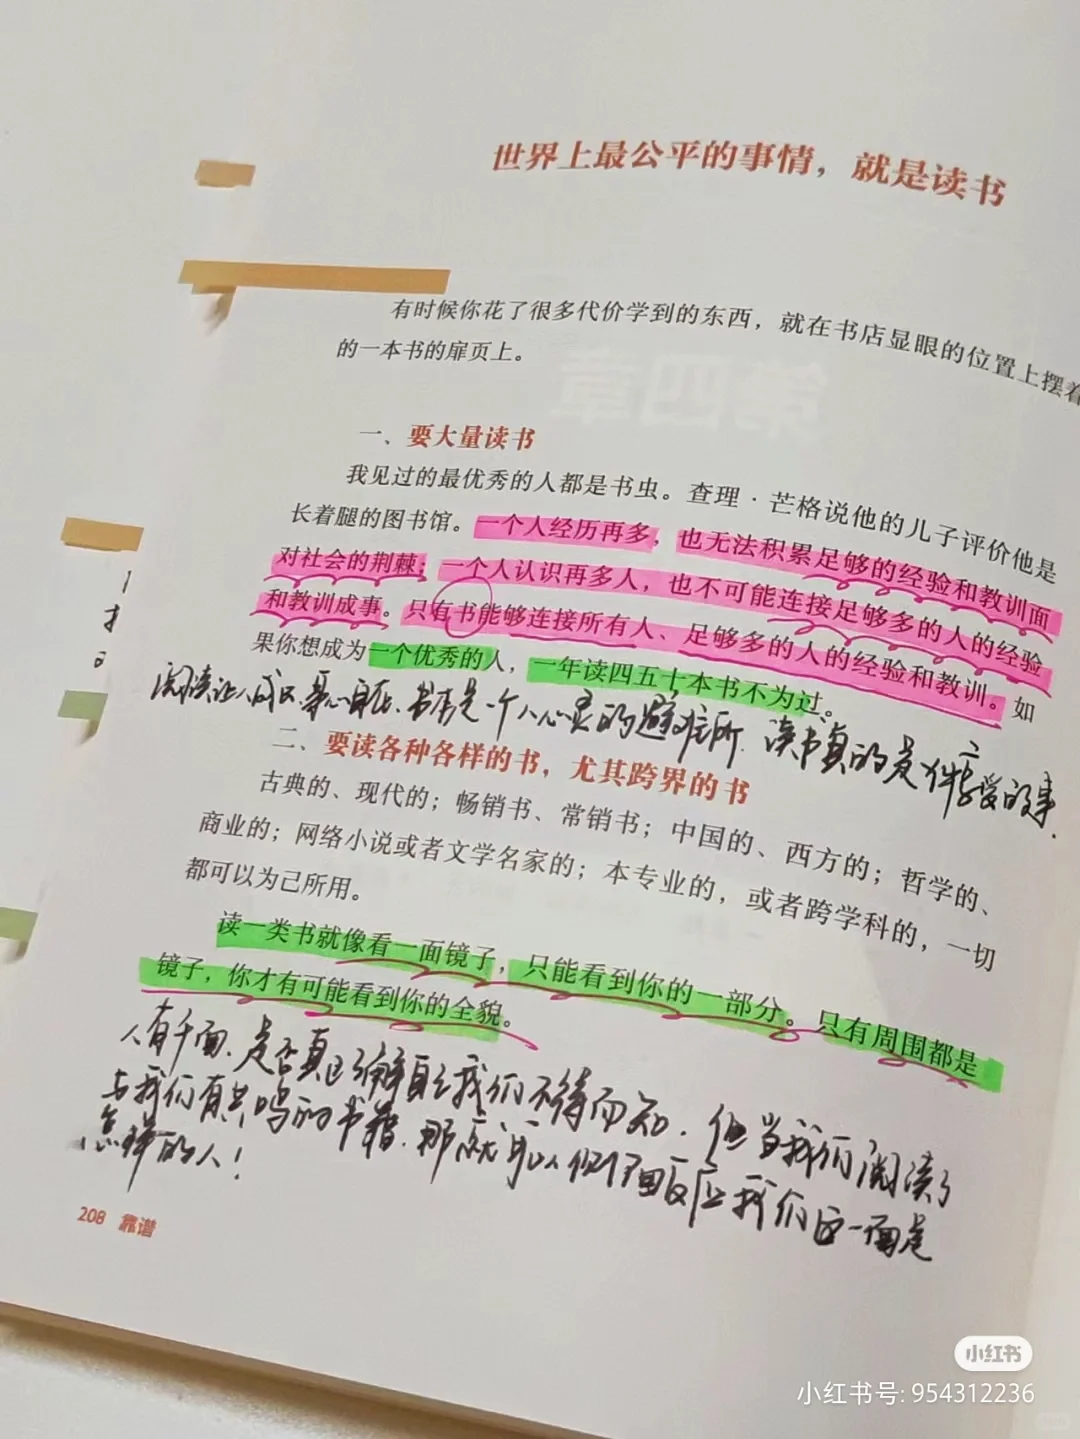 世界上最公平的事情，就是读书
有时候你花了很多代价学到的东西，就在书店显眼的位置上摆着
的一本书的扉页上。
第四章
一、要大量读书
我见过的最优秀的人都是书虫。查理·芒格说他的儿子评价他是
长着腿的图书馆。一个人经历再多，也无法积累足够的经验和教训面
对社会的荆棘；一个人认识再多人，也不可能连接足够多的人的经验
和教训成事。只有书能够连接所有人、足够多的人的经验和教训。如
果你想成为一个优秀的人，一年读四五十本书不为过。
阅读让人成长、身心自在、书本是一个人心灵的避难所、读书真的是一件享受的事.
二、要读各种各样的书，尤其跨界的书
古典的、现代的；畅销书、常销书；中国的、西方的；哲学的、
商业的；网络小说或者文学名家的；本专业的，或者跨学科的，一切
都可以为己所用。
读一类书就像看一面镜子，只能看到你的一部分。只有周围都是
镜子，你才有可能看到你的全貌。
人有千面、是否真已了解自己我们不得而知. 但当我们阅读了
与我们有共鸣的书籍、那就可以侧面反应我们这一面是
怎样的人！
208 靠谱
小红书
小红书号: 954312236